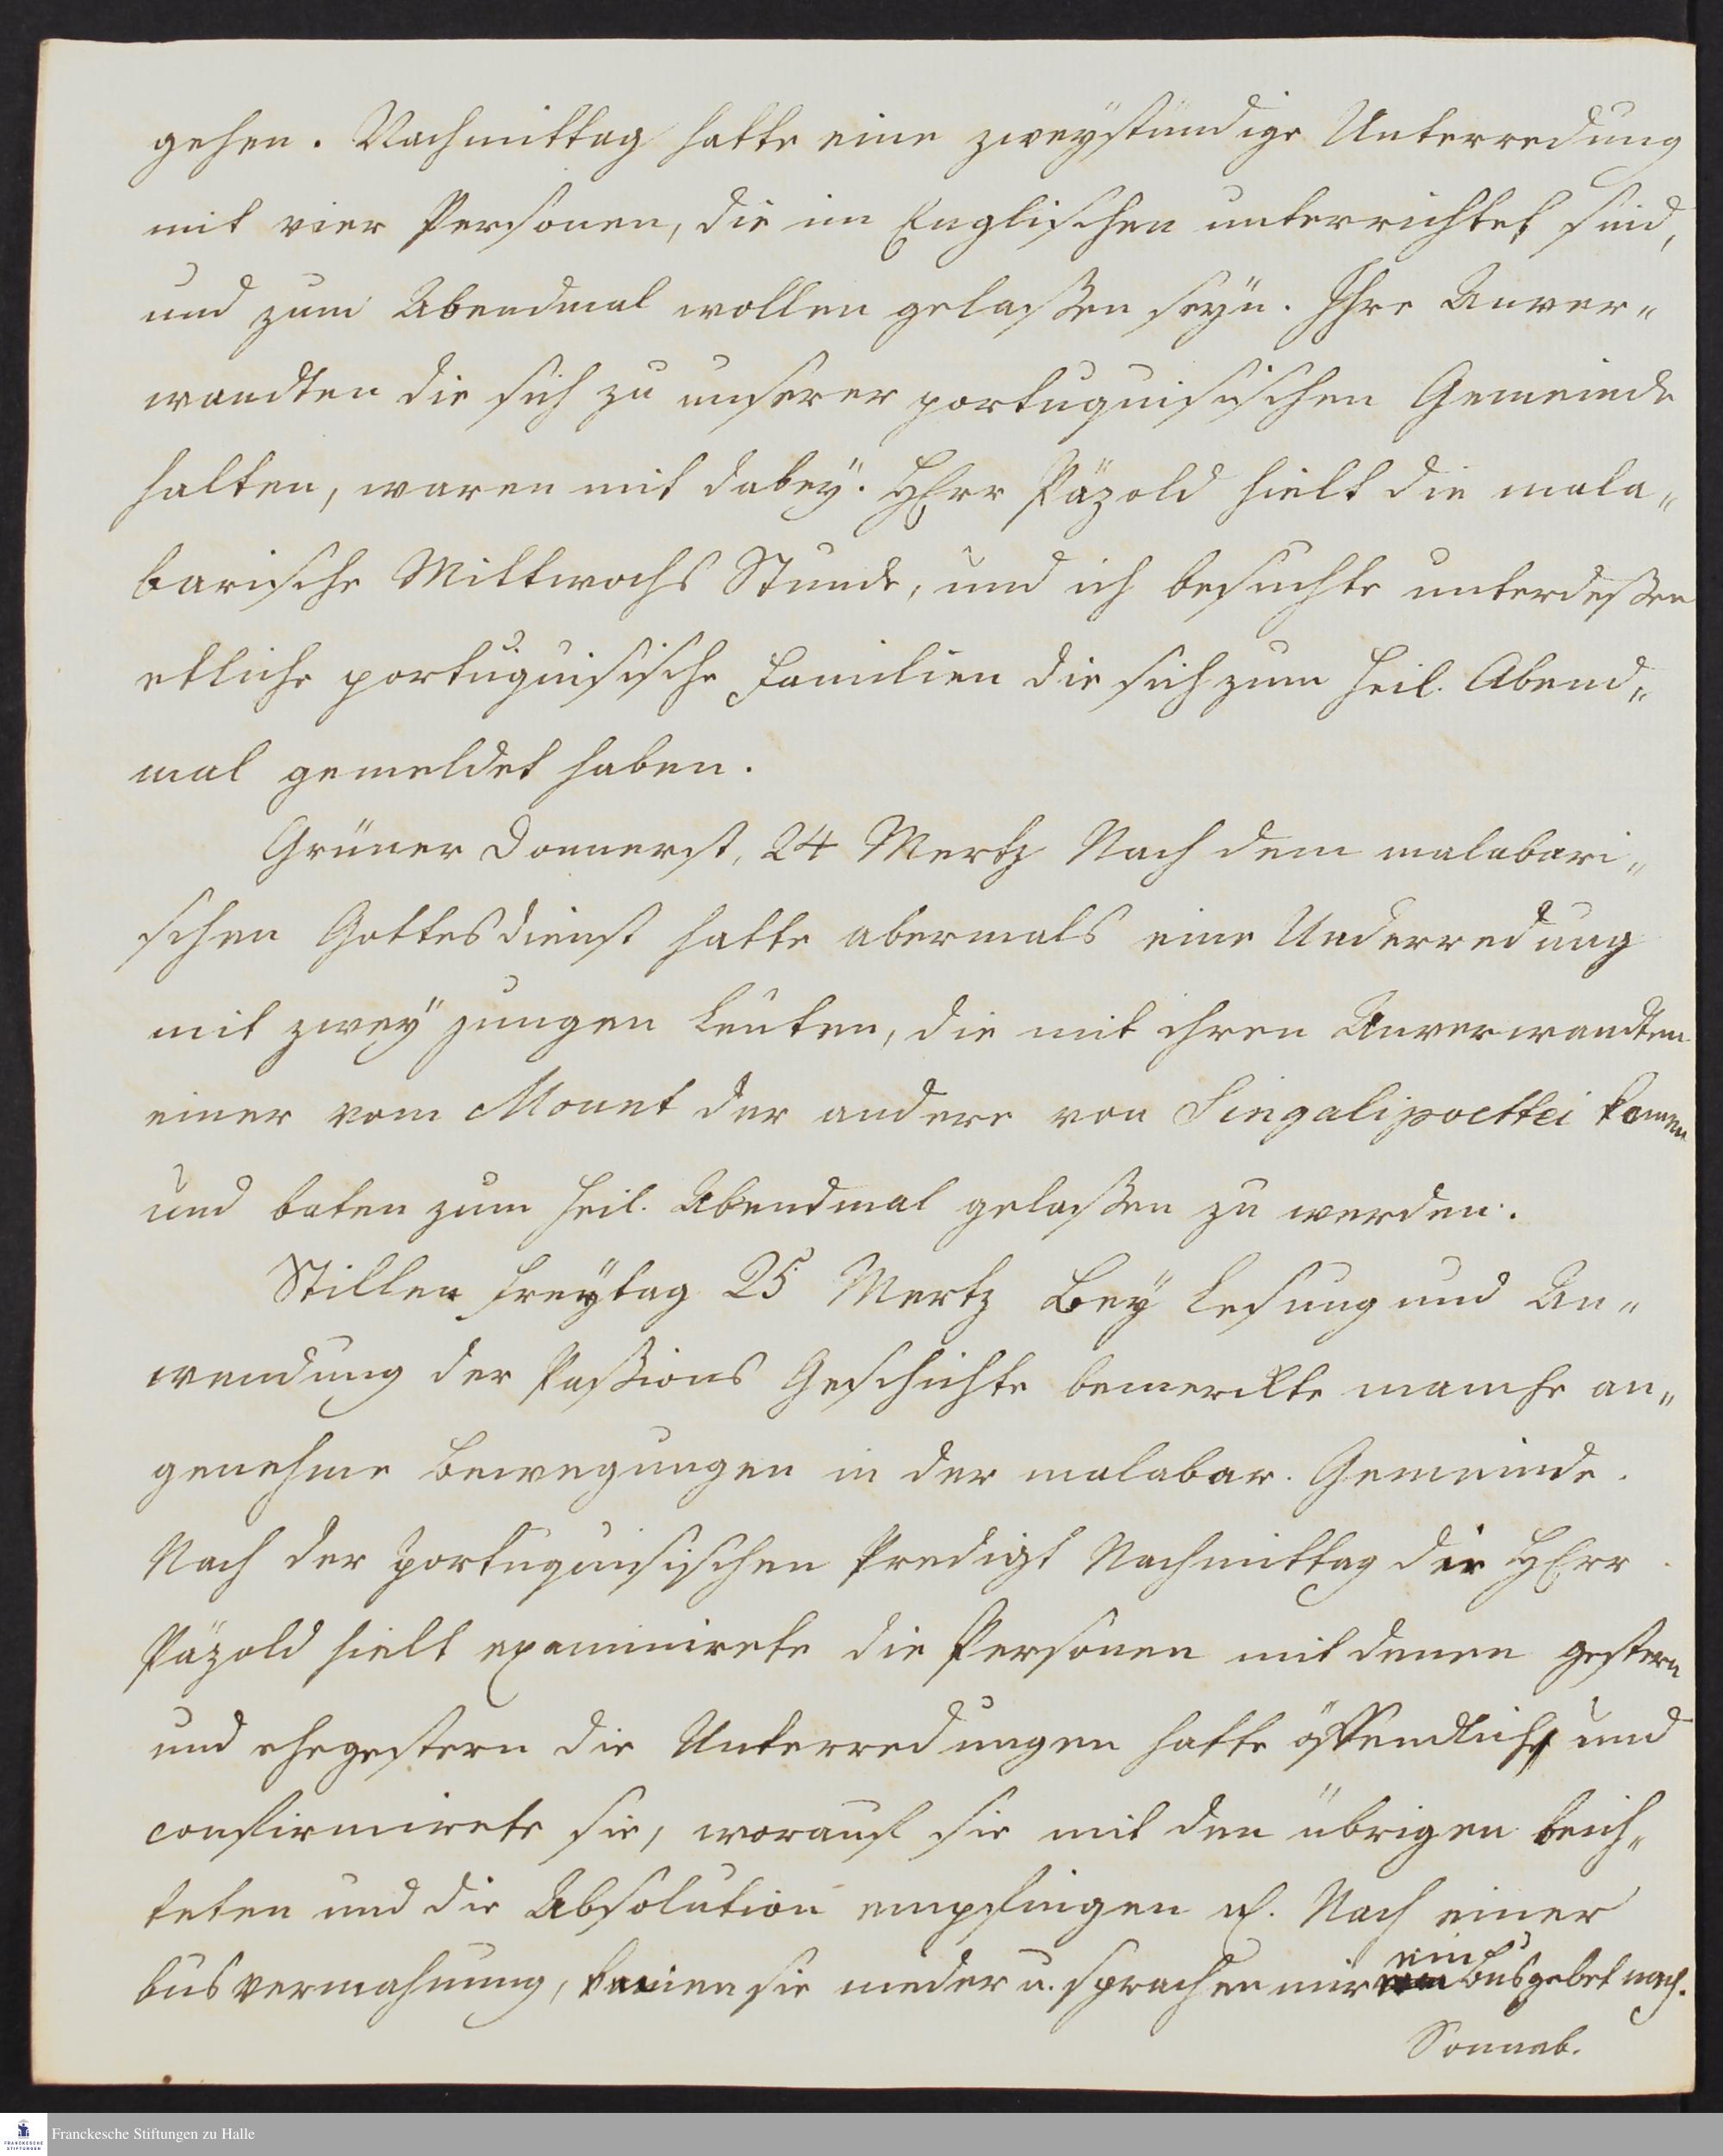 gehen. Nachmittag hatte eine zweystündige Unterredung
mit vier Personen, die im Englischen unterrichtet sind,
und zum Abendmal wollen gelaßen seyn. Ihre Anver„
wandten die sich zu unserer portuguisischen Gemeinde
halten, waren mit dabey. HErr Päzold hielt die mala„
barische Mittwochs Stunde, und ich besuchte unterdeßen
etliche portuguisische Familien die sich zum heil. Abend„
mal gemeldet haben.
Grüner Donnerst, 24 Mertz Nach dem malabari„
schen Gottesdienst hatte abermals eine Underredung
mit zwey jungen Leuten, die mit ihren Anverwandten
einer vom Mount der andere von Singalipoettei kamen
und baten zum heil. Abendmal gelaßen zu werden.
Stillen Freytag 25 Mertz Bey Lesung und An„
wendung der Paßions Geschichte bemerckte manche an„
genehme Bewegungen in der malabar. Gemeinde.
Nach der portuguisischen Predigt Nachmittag die HErr
Päzold hielt examinirete die Personen mit denen gestern
und ehegestern die Unterredungen hatte öffendlich und
confirmirete sie, worauf sie mit den übrigen beich„
teten und die Absolution empfingen. Nach einer
Busvermahnung, knieien sie nieder u. sprachen mir ein Busgebet nach.
Sonnab.
Franckesche Stiftungen zu Halle